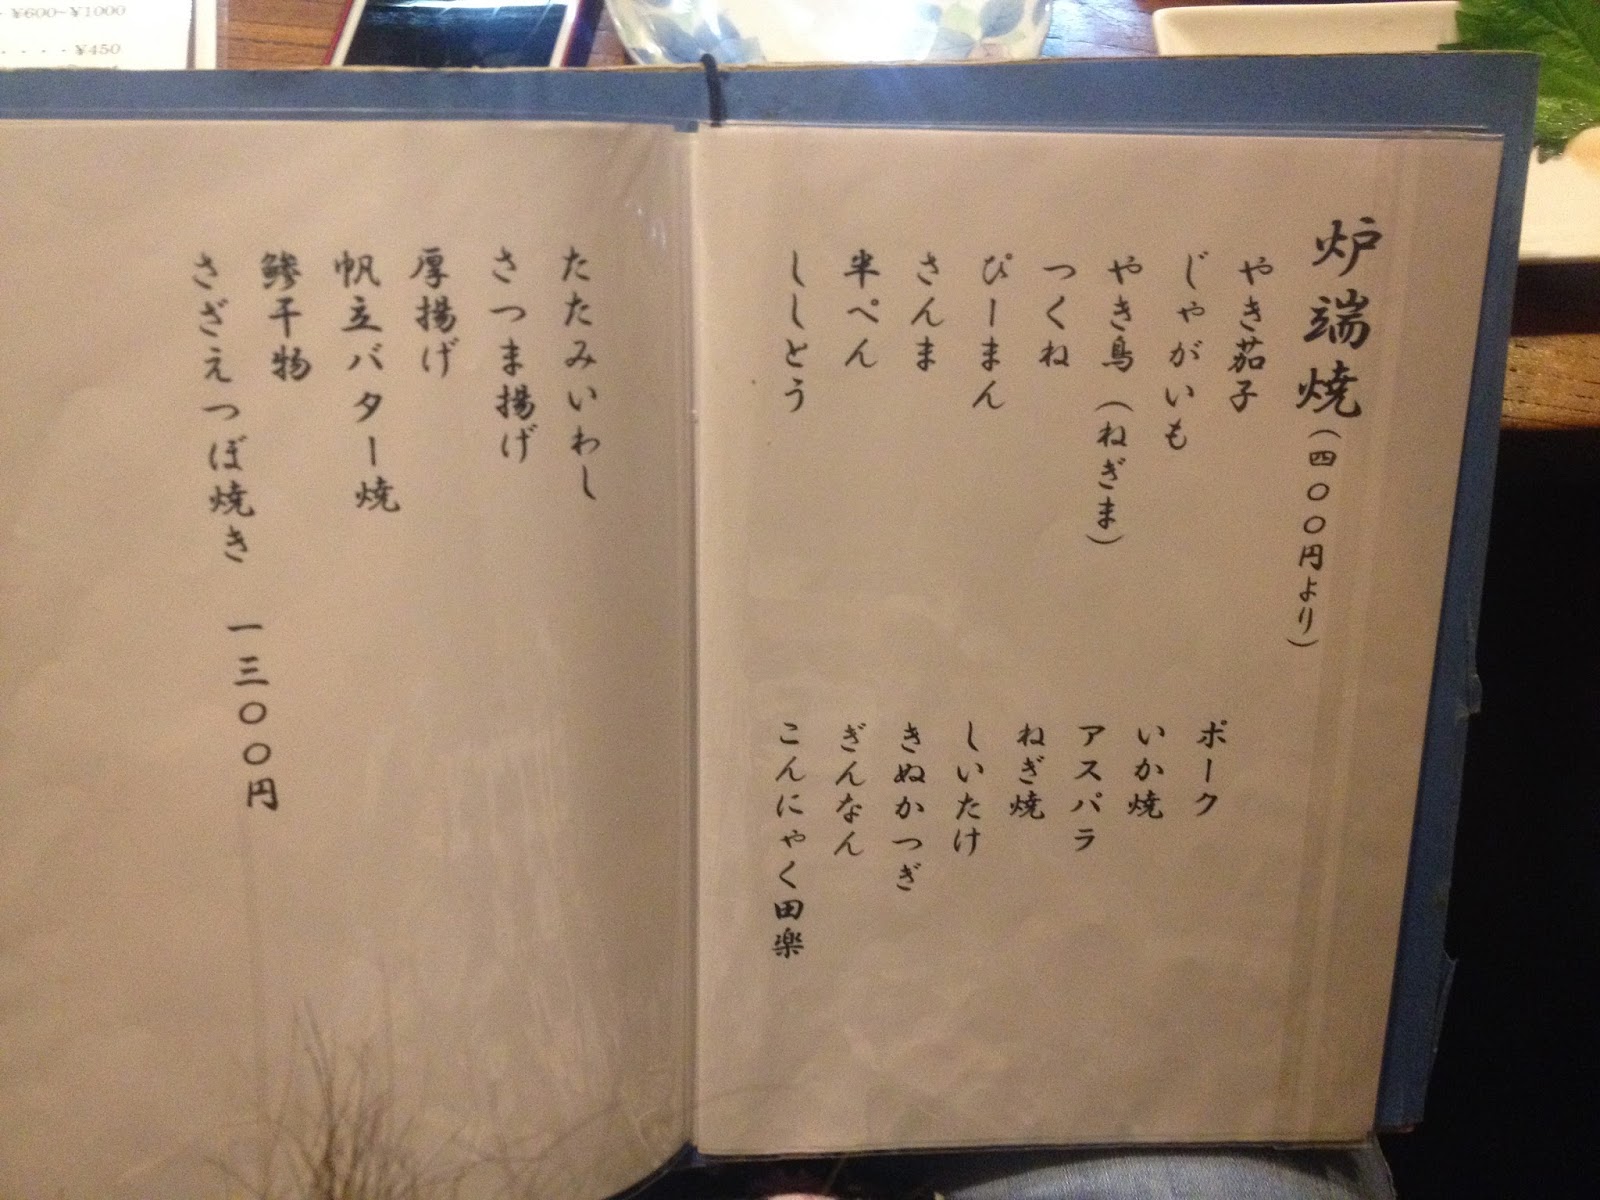 炉端焼（四〇〇円より）
やき茄子
じゃがいも
やき鳥（ねぎま）
つくね
ぴーまん
さんま
半ぺん
ししとう
ポーク
いか焼
アスパラ
ねぎ焼
しいたけ
きぬかつぎ
ぎんなん
こんにゃく田楽
たたみいわし
さつま揚げ
厚揚げ
帆立バター焼
鯵干物
さざえつぼ焼き 一三〇〇円
¥600~¥1000
・・・・¥450